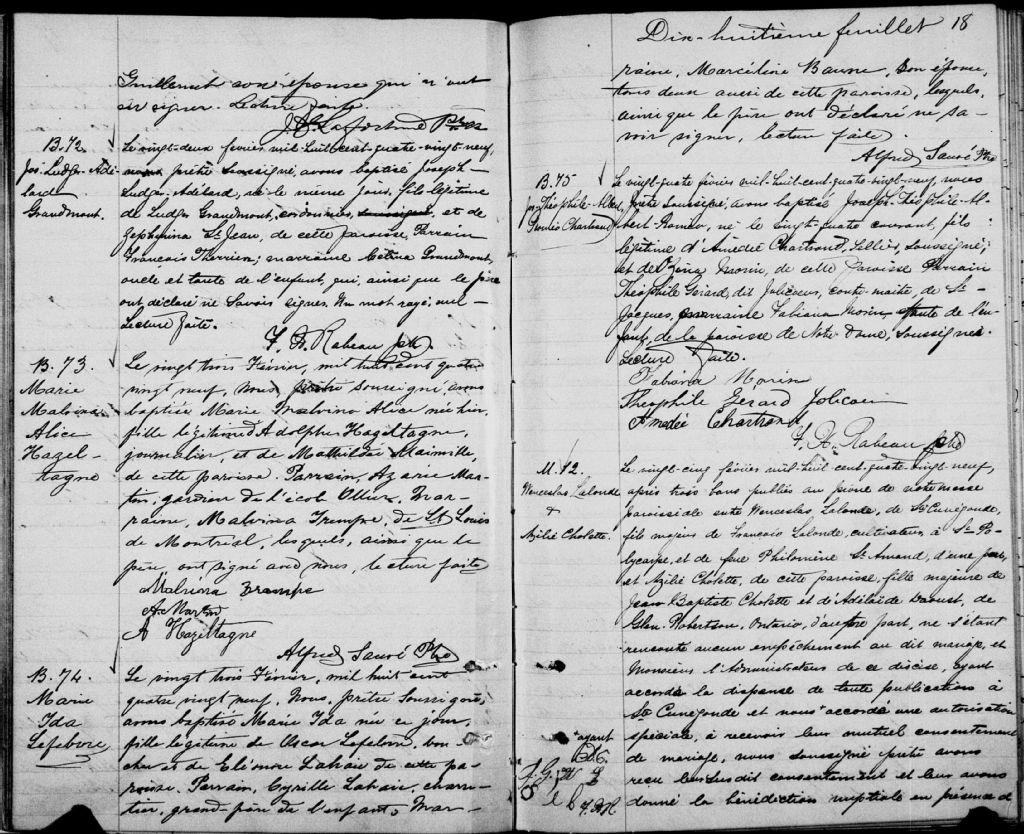 Guillemet son épouse qui n'ont
su signer. Lecture faite.
J. G. Laferland Ptre
B. 72
Jos. Ludger-Adé-
lard
Grandmont.
Le vingt-deux février mil-huit-cent-quatre-vingt-neuf,
nous prêtre soussigné, avons baptisé Joseph-
Ludger-Adélard, né le même jour, fils légitime
de Ludger Grandmont, cordonnier, soussigné, et de
Zéphirina St Jean, de cette paroisse, Parrain
François Therrien; marraine Grandmont,
oncle et tante de l'enfant, qui, ainsi que le père
ont déclaré ne savoir signer. Un mot rayé, nul —
Lecture faite.
F. A. Rabeau ptre
B. 73.
Marie
Malvina
Alice
Hazel-
tagne
Le vingt trois Février, mil huit cent quatre
vingt neuf, Nous prêtre soussigné, avons
baptisé Marie Malvina Alice née hier,
fille légitime d'Adolphe Hazeltagne,
journalier, et de Mathilde Mainville,
de cette paroisse. Parrain, Azarie Mar-
tin, gardien de l'école Olier, Mar-
raine, Malvina Trempe, de St Louis
de Montréal, lesquels, ainsi que le
père, ont signé avec nous, lecture faite
Malvina Trempe
A. Martin
A Hazeltagne
Alfred Sauvé Ptre
B. 74.
Marie
Ida
Lefebvre
Le vingt trois Février, mil huit cent
quatre vingt neuf, Nous, prêtre soussigné,
avons baptisé Marie Ida née ce jour,
fille légitime de Oscar Lefebvre, bou-
cher et de Eléonore Lahaie de cette pa-
roisse. Parrain, Cyrille Lahaie, charre-
tier, grand-père de l'enfant, Mar-
Dix-huitième feuillet 18
raine, Marcéline Baune, son épouse,
tous deux aussi de cette paroisse, lesquels,
ainsi que le père ont déclaré ne sa-
voir signer, lecture faite.
Alfred Sauvé Ptre
B. 75
Jos. Théophile-Albert
Roméo Chartrand
Le vingt-quatre février mil-huit-cent-quatre-vingt-neuf, nous
prêtre soussigné, avons baptisé Joseph-Théophile-Al-
bert-Roméo, né le vingt-quatre courant, fils
légitime d'Amédée Chartrand, sellier, soussigné;
et de Rosina Morin, de cette paroisse Parrain
Théophile Gérard, dit Jolicoeur, contre-maître, de St-
Jacques, marraine Fabiana Morin tante de l'en-
fant, de la paroisse de Notre-Dame, soussignés.
Lecture faite.
Fabiana Morin
Théophile Gérard Jolicoeur
Amédée Chartrand
F. A. Rabeau ptre
M. 12.
Wenceslas Lalonde
&
Azilie Cholette.
Le vingt-cinq février mil-huit cent-quatre-vingt-neuf,
après trois bans publiés au prône de notre messe
paroissiale entre Wenceslas, Lalonde, de Ste Cunégonde,
fils majeur de François Lalonde, cultivateur, à St Po-
lycarpe, et de feue Philomène St-Amand, d'une part,
et Azilie Cholette, de cette paroisse, fille majeure de
Jean Baptiste Cholette et d'Adélaïde Daoust, de
Glen-Robertson, Ontario, d'autre part, ne s'étant
rencontré aucun empêchement au dit mariage, et
Monsieur l'Administrateur de ce diocèse, ayant
accordé la dispense de toute publication à
Ste Cunégonde et nous accordé une autorisation
spéciale, à recevoir leur mutuel consentement
de mariage, nous soussigné prêtre avons
reçu leur susdit consentement et leur avons
donné la bénédiction nuptiale en présence de
ayant